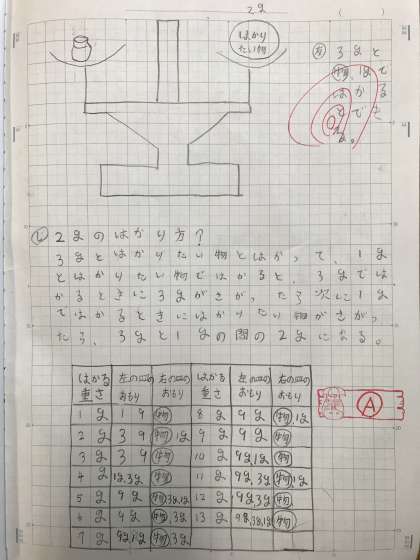 2g
はかり
たい物
3gと
物、はで
はかる
とでき
る。
2gのはかり方?
3gとはかりたい物とはかって、1g
とはかりたい物ではかると、3gでは
かるときに3gがさがったら次に1g
ではかるときにはかりたい物がさがっ
たら、3gと1gの間の2gになる。
はかる 左の皿の 右の皿の はかる 左の皿の 右の皿の
重さ おもり おもり 重さ おもり おもり
1g 1g 物 8g 9g 物,1g
2g 3g 物,1g 9g 9g 物
3g 3g 物 10g 9g,1g 物
4g 1g,3g 物 11g 9g,3g 物,1g
5g 9g 物,3g,1g 12g 9g,3g 物
6g 9g 物,3g 13g 9g,3g,1g 物
7g 9g,1g 物,3g
A